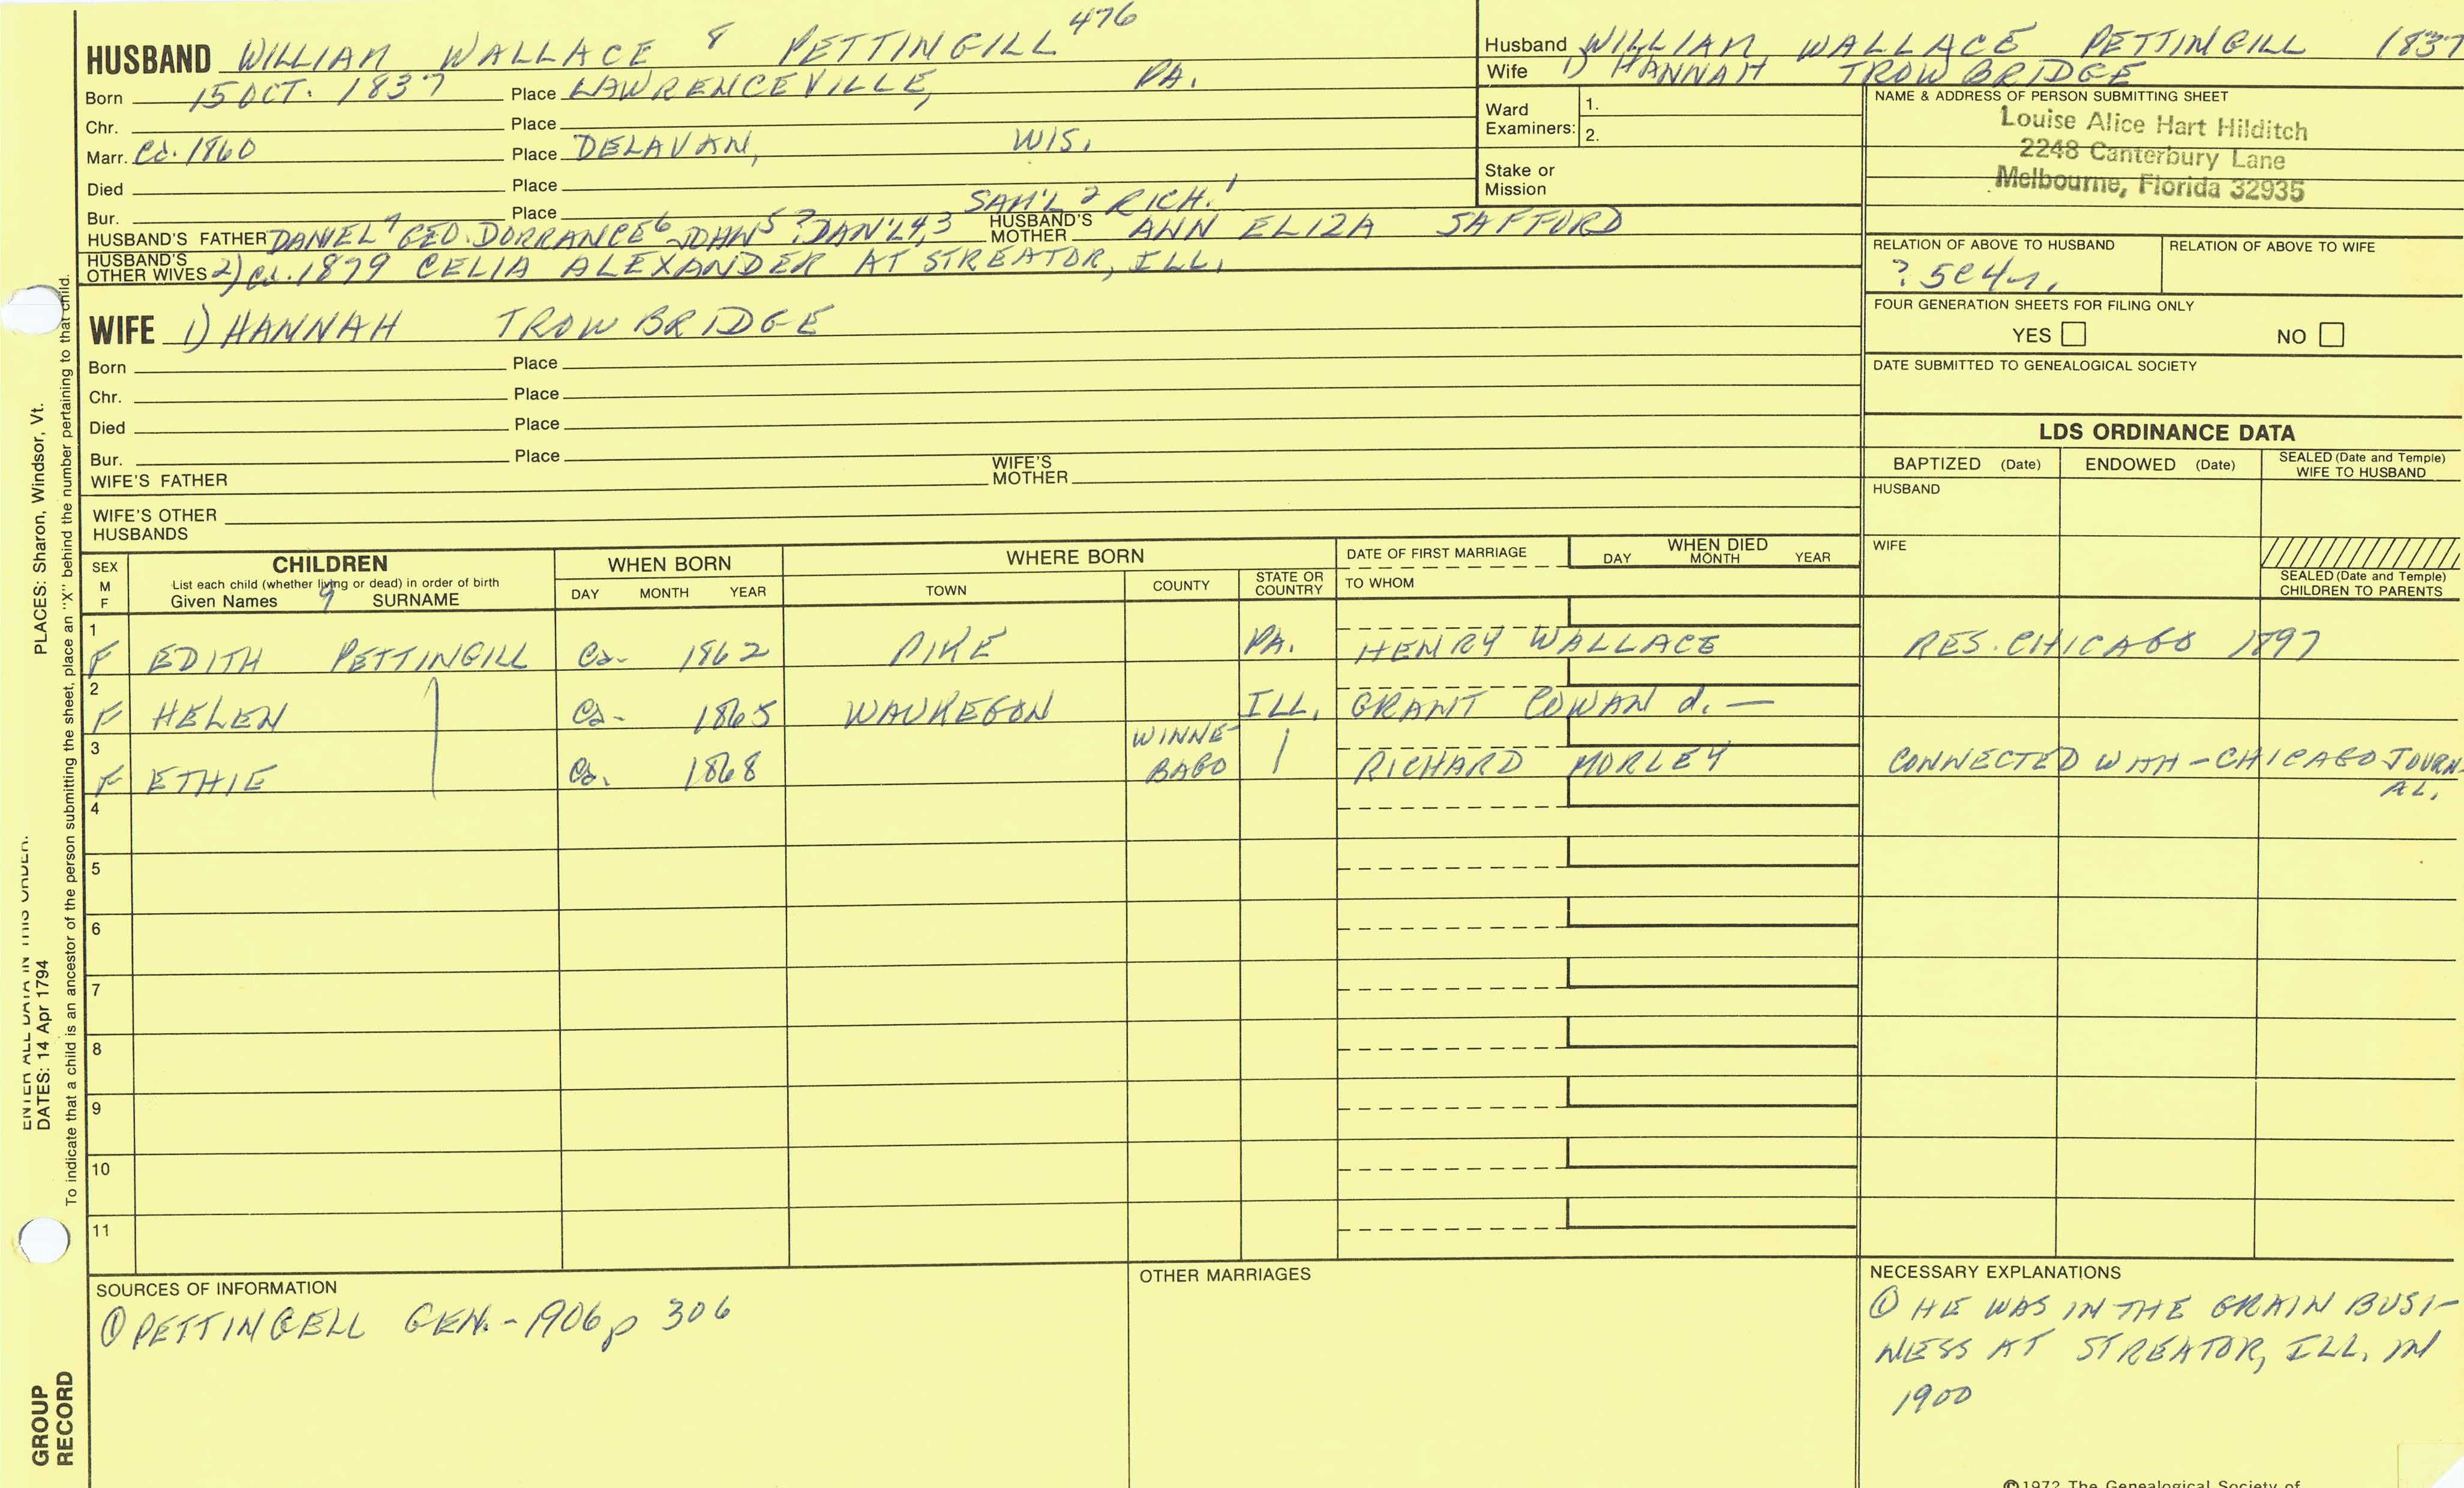 HUSBAND WILLIAM WALLACE 8 PETTINGILL 476
Born 15 OCT. 1837 Place LAWRENCEVILLE, PA.
Chr. Place
Marr. Ca. 1860 Place DELAVAN, WIS.
Died Place
Bur. Place SAM'L 2 RICH. 1
HUSBAND'S FATHER DANIEL 7 GEO. DORRANCE 6 JOHN 5 ? DAN'L 4,3 HUSBAND'S MOTHER ANN ELIZA SAFFORD
HUSBAND'S OTHER WIVES 2) Ca. 1879 CELIA ALEXANDER AT STREATOR, ILL.
WIFE 1) HANNAH TROWBRIDGE
Born Place
Chr. Place
Died Place
Bur. Place
WIFE'S FATHER WIFE'S MOTHER
WIFE'S OTHER HUSBANDS
Husband WILLIAM WALLACE PETTINGILL 1837
Wife 1) HANNAH TROWBRIDGE
Ward Examiners: 1.
2.
Stake or Mission
NAME & ADDRESS OF PERSON SUBMITTING SHEET
Louise Alice Hart Hilditch
2248 Canterbury Lane
Melbourne, Florida 32935
RELATION OF ABOVE TO HUSBAND RELATION OF ABOVE TO WIFE
? 5C4r.
FOUR GENERATION SHEETS FOR FILING ONLY
YES NO
DATE SUBMITTED TO GENEALOGICAL SOCIETY
LDS ORDINANCE DATA
BAPTIZED (Date) ENDOWED (Date) SEALED (Date and Temple) WIFE TO HUSBAND
HUSBAND
WIFE
SEALED (Date and Temple) CHILDREN TO PARENTS
SEX M F CHILDREN WHEN BORN WHERE BORN DATE OF FIRST MARRIAGE WHEN DIED
List each child (whether living or dead) in order of birth
Given Names 9 SURNAME DAY MONTH YEAR TOWN COUNTY STATE OR COUNTRY TO WHOM DAY MONTH YEAR
1 F EDITH PETTINGILL Ca. 1862 PIKE PA. HENRY WALLACE RES. CHICAGO 1897
2 F HELEN Ca. 1865 WAUKEGON ILL. GRANT COWAN d. —
3 F ETHIE Ca. 1868 WINNE-BAGO RICHARD MORLEY CONNECTED WITH - CHICAGO JOURN-AL.
4
5
6
7
8
9
10
11
SOURCES OF INFORMATION
① PETTINGELL GEN. - 1906 p 306
OTHER MARRIAGES
NECESSARY EXPLANATIONS
① HE WAS IN THE GRAIN BUSI-
NESS AT STREATOR, ILL. IN
1900
©1972 The Genealogical Society of
PLACES: Sharon, Windsor, Vt.
ENTER ALL DATA IN THIS ORDER:
DATES: 14 Apr 1794
To indicate that a child is an ancestor of the person submitting the sheet, place an "X" behind the number pertaining to that child.
GROUP
RECORD